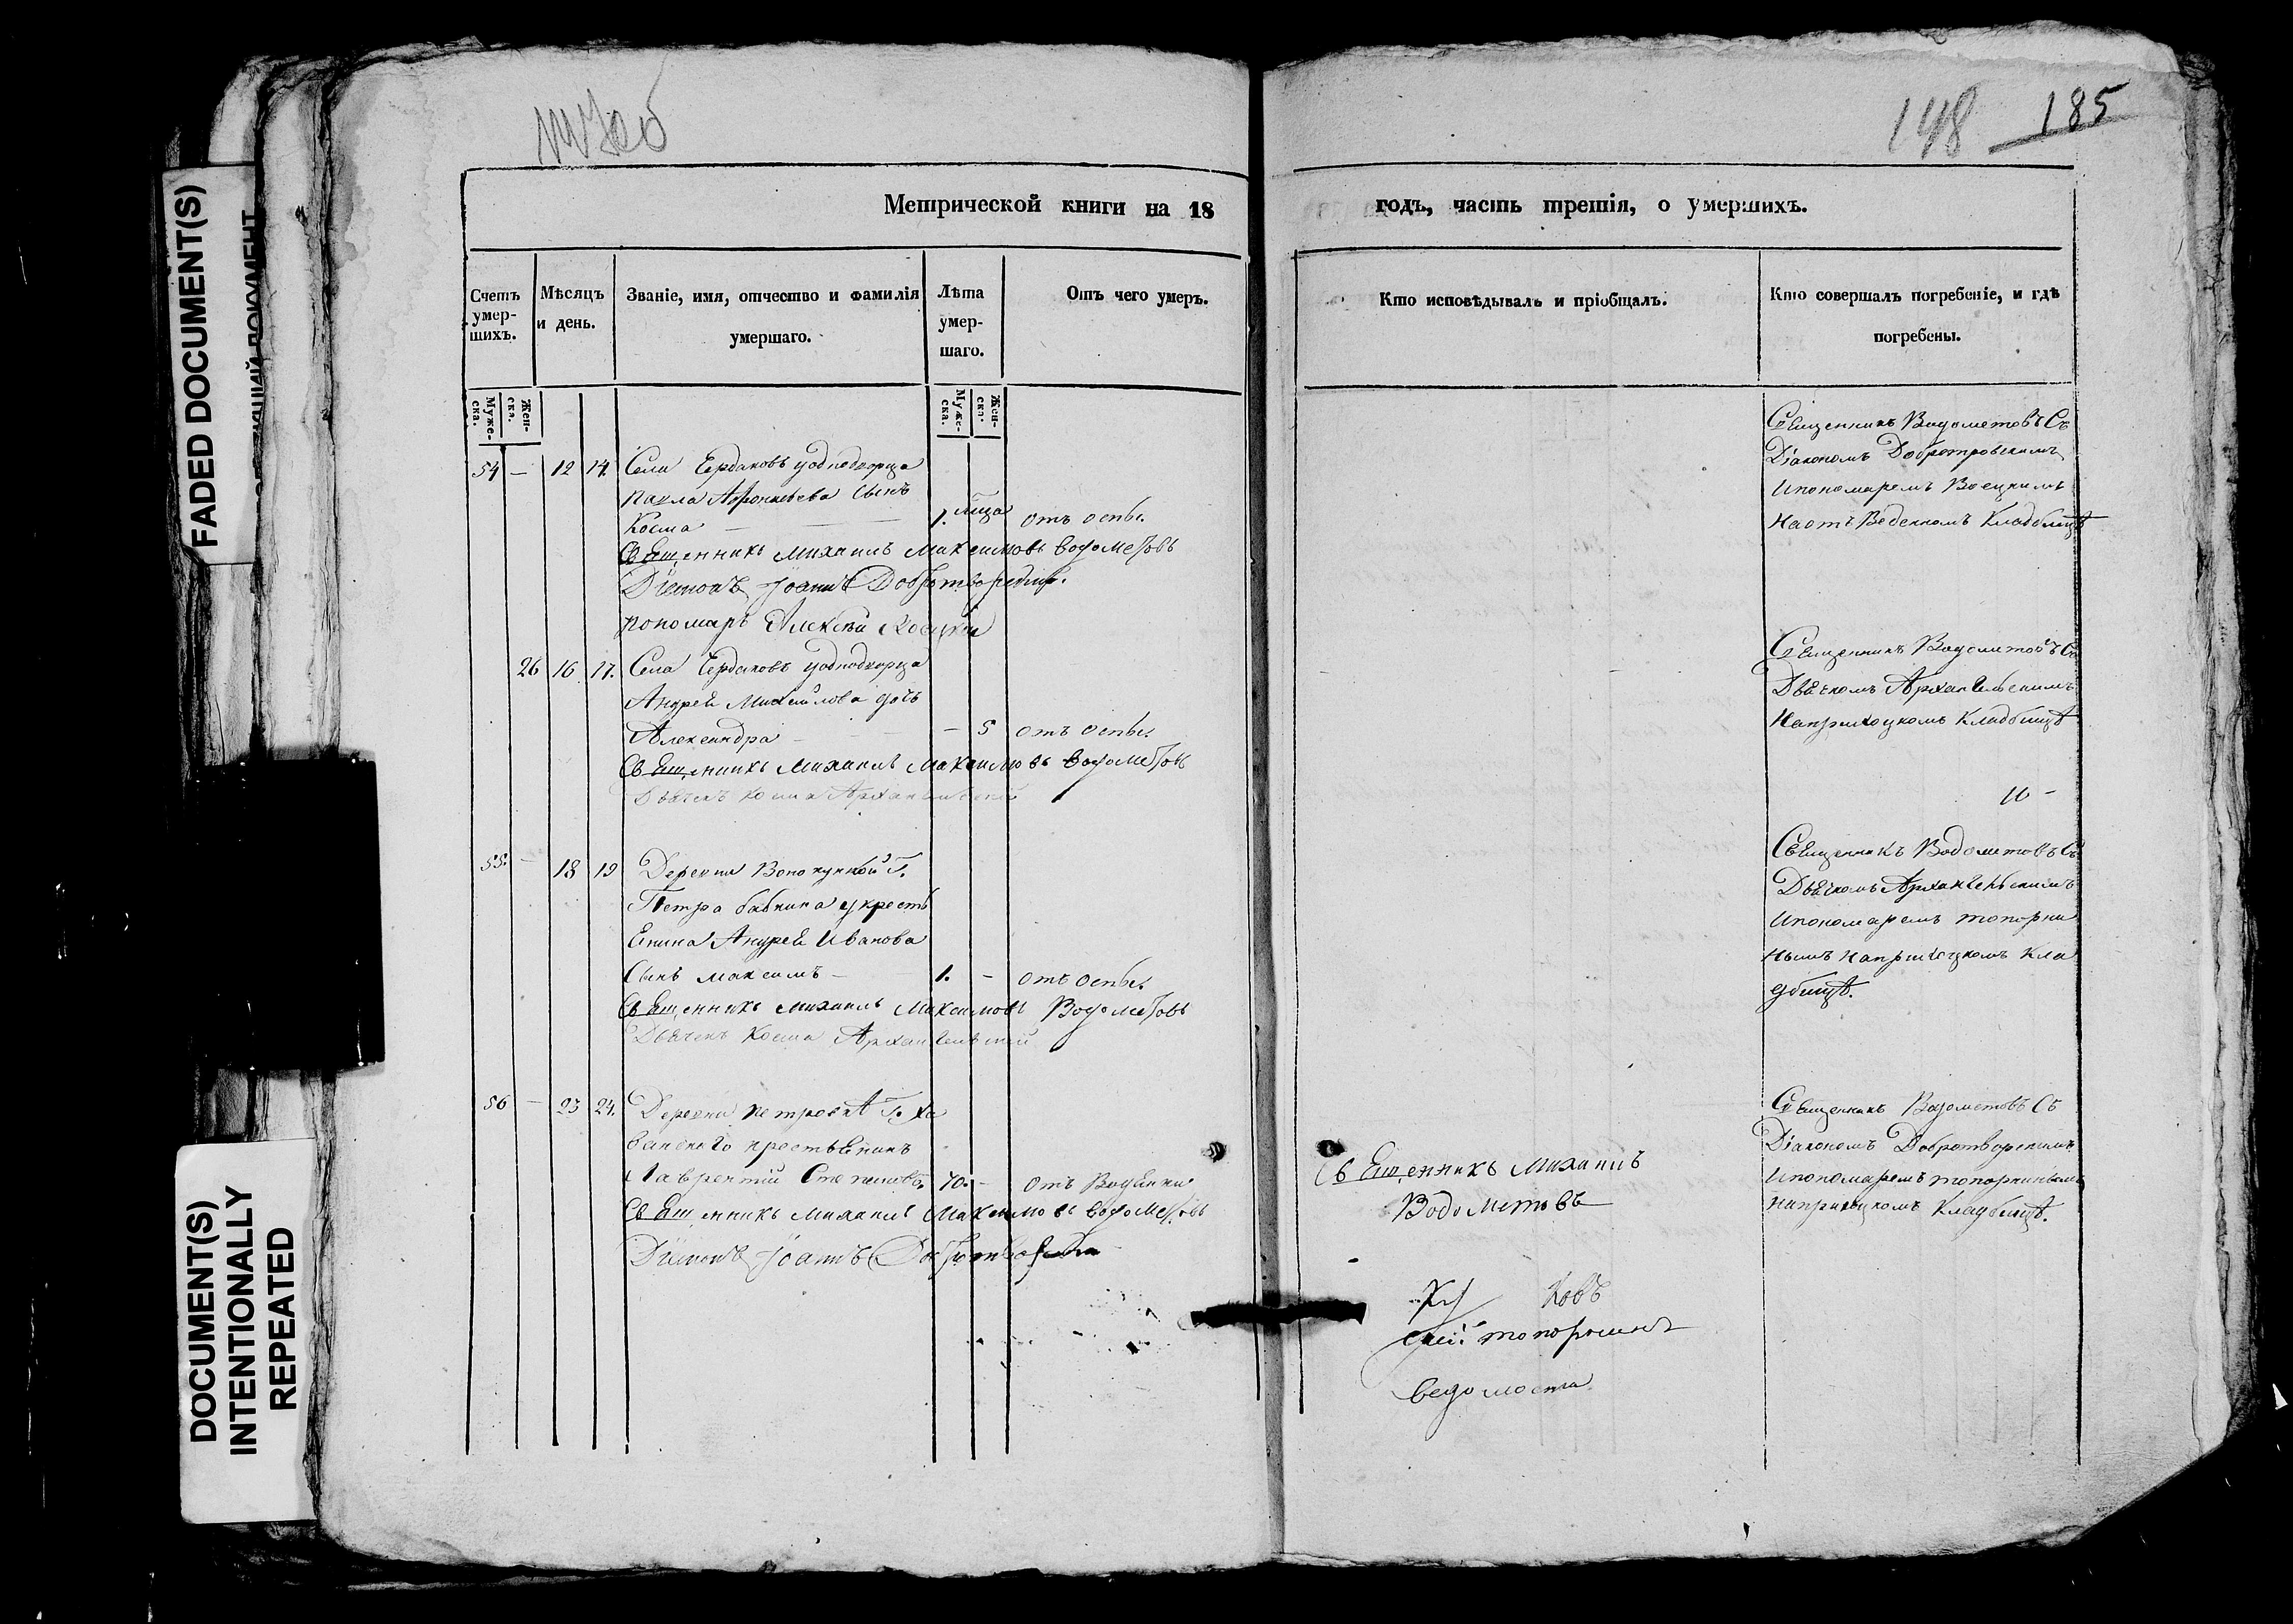 148 185
Метрической книги на 18 годъ, часть третія, о умершихъ.
Счетъ умер-шихъ.
Мѣсяцъ и день.
Званіе, имя, отчество и фамилія умершаго.
Лѣта умер-шаго.
Отъ чего умеръ.
Кто исповѣдывалъ и пріобщалъ.
Кто совершалъ погребеніе, и гдѣ погребены.
Муже-ска.
Жен-ска.
Муже-ска.
Жен-ска.
54 — 12 14. Села Чердаковъ однодворца
Павла Афонасьева сынъ
Косма — 1. отъ оспы.
Священникъ Михаилъ Максимовъ Водометовъ
Діаконъ Іоаннъ Добротворскій.
Пономарь Алексѣй
Священникъ Водометовъ Съ
Діакономъ
И пономаремъ
На отъ Веденномъ Кладбищѣ
26 16 17. Села Чердаковъ однодворца
Андрея Михайлова дочь
Александра — 5 отъ оспы.
Священникъ Михаилъ Максимовъ Водометовъ
Дьячекъ Косма Архангельскій
Священникъ Водометовъ Съ
Дьячкомъ Архангельскимъ
На приходскомъ Кладбищѣ
55. — 18 19 Деревни Г.
Петра Бабкина крестъ
янина Андрея Иванова
Сынъ Максимъ — 1. — отъ оспы.
Священникъ Михаилъ Максимовъ Водометовъ
Дьячекъ Косма Архангельскій
Священникъ Водометовъ Съ
Дьячкомъ Архангельскимъ
И пономаремъ Топорни
нымъ На приходскомъ Кла
дбищѣ.
56 — 23 24. Деревни Петровки Г. Хо
ванскаго крестьянинъ
Лаврентій Степановъ. 70. — отъ Водянки
Священникъ Михаилъ Максимовъ Водометовъ
Діаконъ Іоаннъ
Священникъ Михаилъ
Водометовъ
Священникъ Водометовъ Съ
Діакономъ Добротворскимъ
И пономаремъ Топорнинымъ
На приходскомъ Кладбищѣ.
FADED DOCUMENT(S)
DOCUMENT(S)
INTENTIONALLY
REPEATED